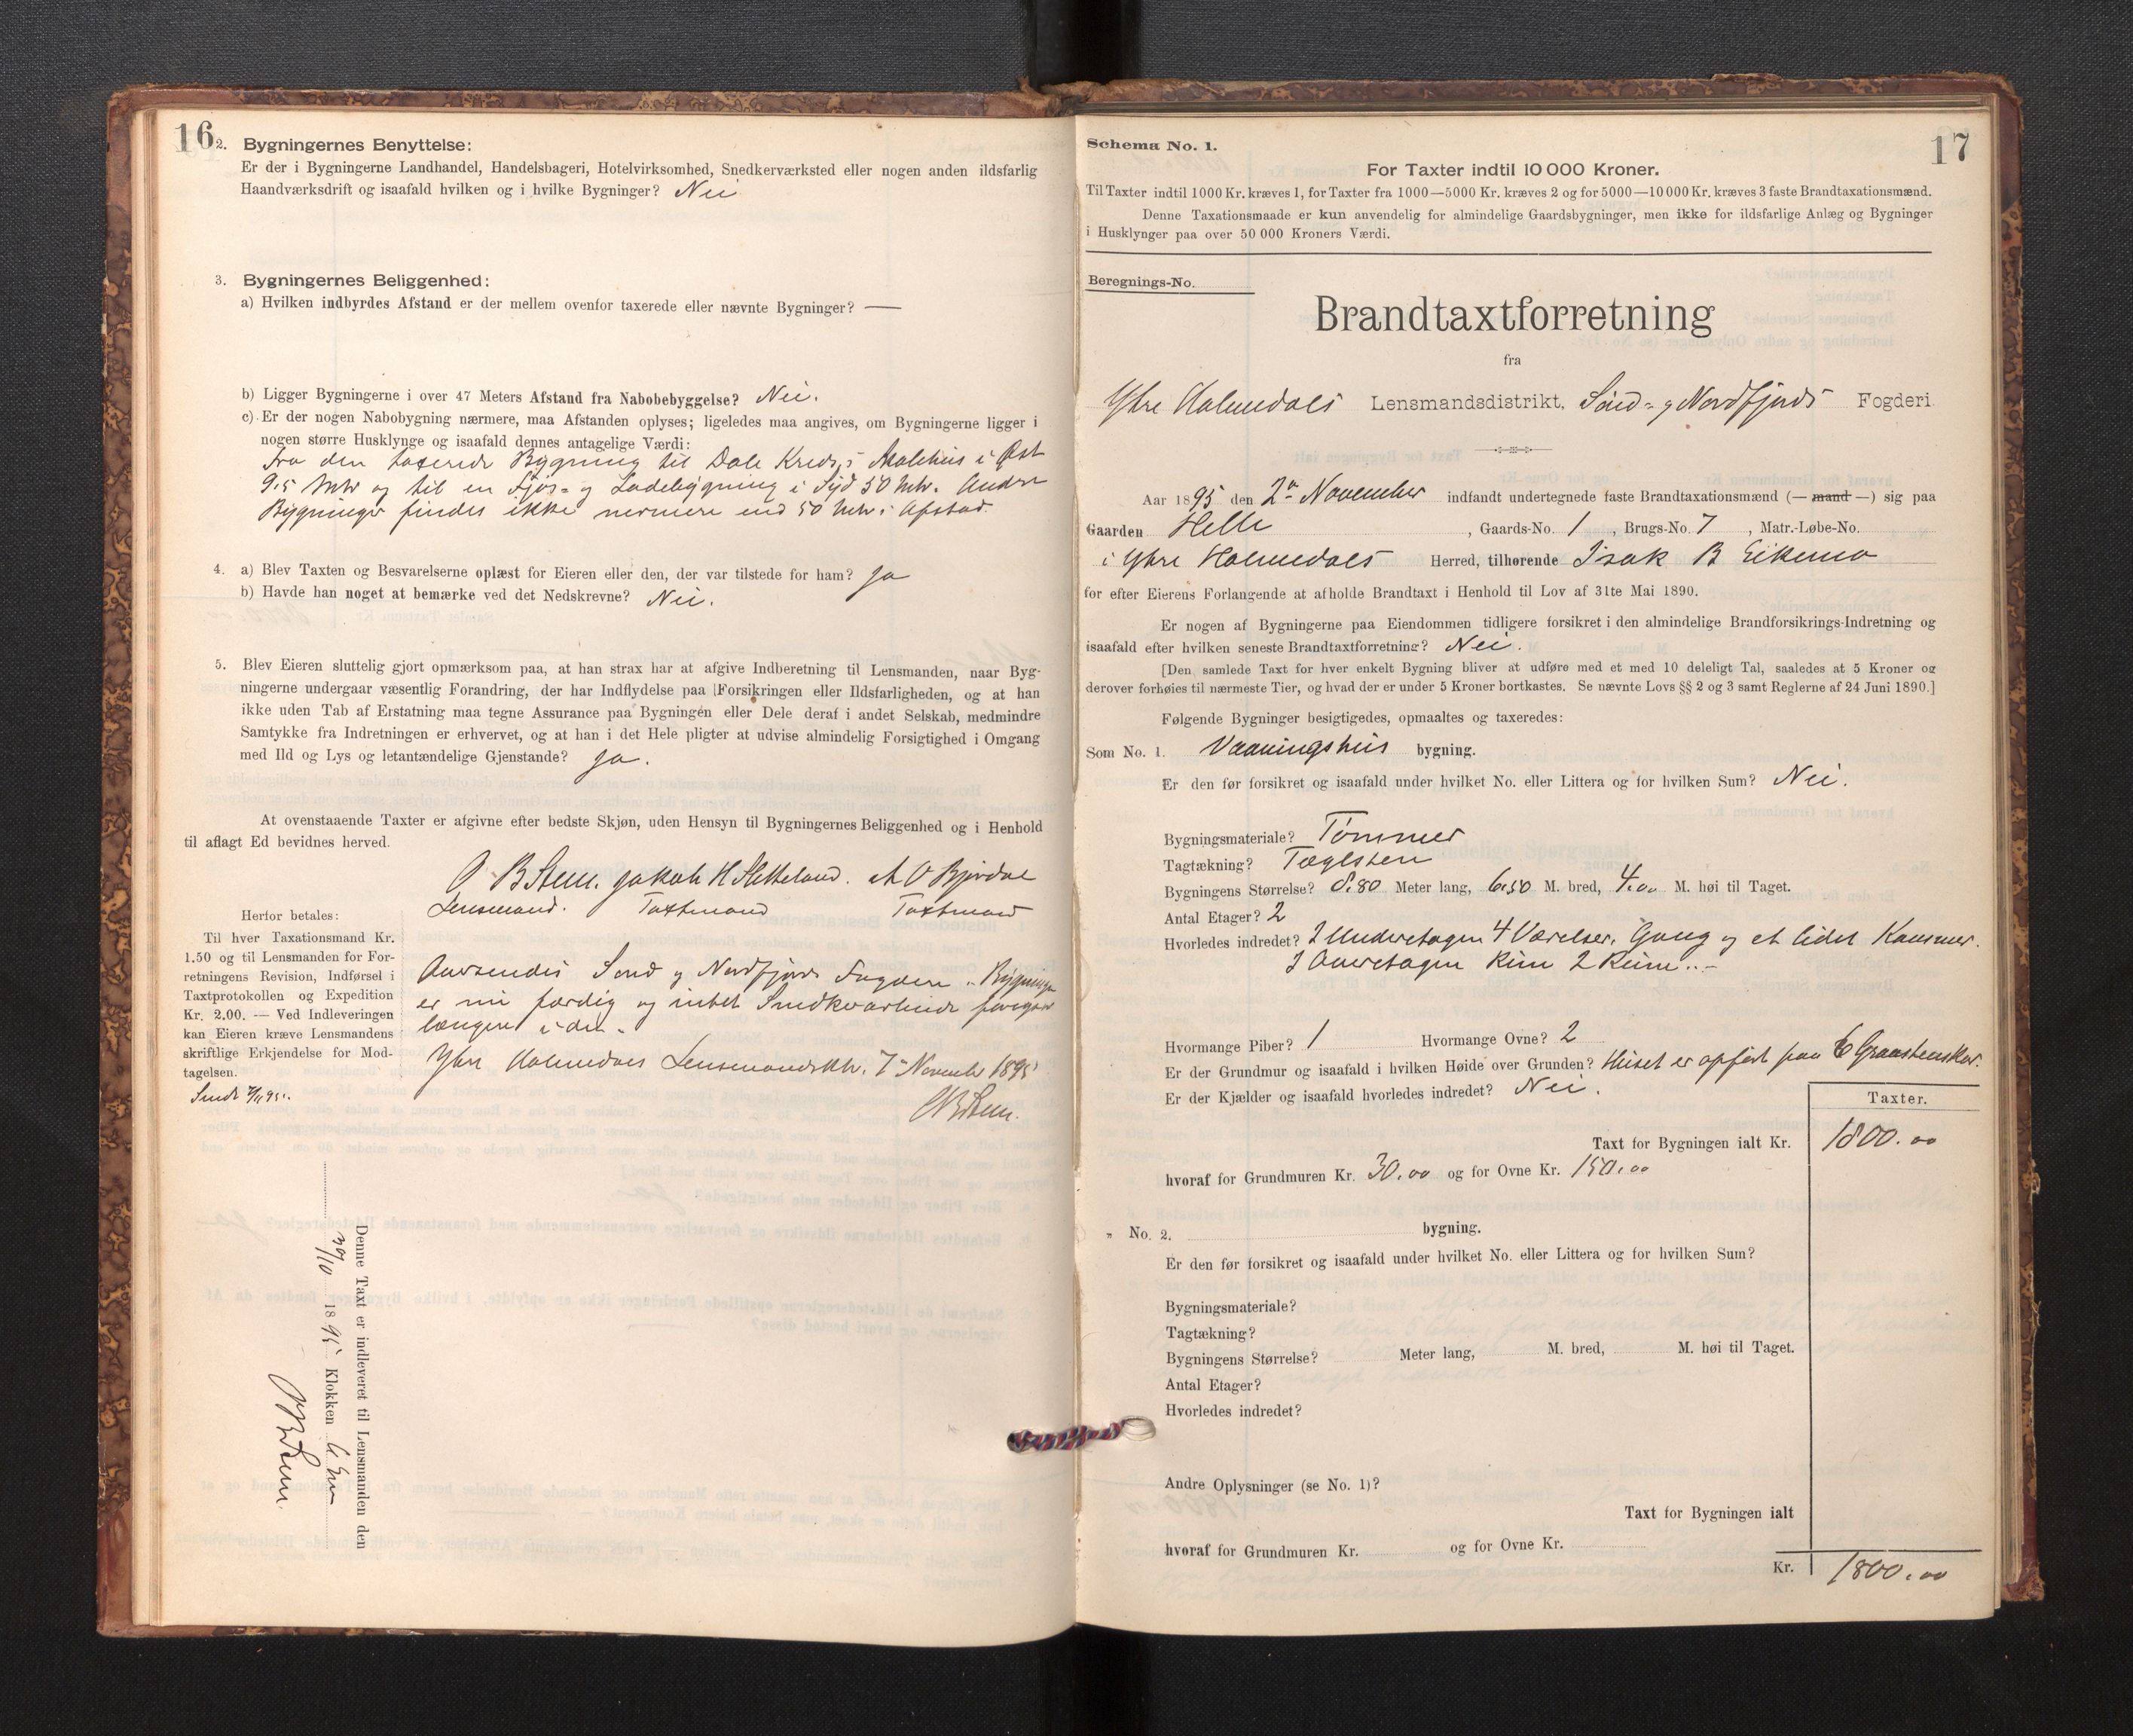 16
2. Bygningernes Benyttelse:
Er der i Bygningerne Landhandel, Handelsbageri, Hotelvirksomhed, Snedkerværksted eller nogen anden ildsfarlig
Haandværksdrift og isaafald hvilken og i hvilke Bygninger? Nei
3. Bygningernes Beliggenhed:
a) Hvilken indbyrdes Afstand er der mellem ovenfor taxerede eller nævnte Bygninger? —
b) Ligger Bygningerne i over 47 Meters Afstand fra Nabobebyggelse? Nei.
c) Er der nogen Nabobygning nærmere, maa Afstanden oplyses; ligeledes maa angives, om Bygningerne ligger i
nogen større Husklynge og isaafald dennes antagelige Værdi:
Fra den taxerede Bygning til Dale Kreds's i Øst
9.5 Mtr og til en Fjøs- og Ladebygning i Syd 30 Mtr. Andre
Bygninger findes ikke nermere end 50 Mtr. i Afstad.
4. a) Blev Taxten og Besvarelserne oplæst for Eieren eller den, der var tilstede for ham? Ja
b) Havde han noget at bemærke ved det Nedskrevne? Nei.
5. Blev Eieren sluttelig gjort opmærksom paa, at han strax har at afgive Indberetning til Lensmanden, naar Byg-
ningerne undergaar væsentlig Forandring, der har Indflydelse paa Forsikringen eller Ildsfarligheden, og at han
ikke uden Tab af Erstatning maa tegne Assurance paa Bygningen eller Dele deraf i andet Selskab, medmindre
Samtykke fra Indretningen er erhvervet, og at han i det Hele pligter at udvise almindelig Forsigtighed i Omgang
med Ild og Lys og letantændelige Gjenstande? Ja.
At ovenstaaende Taxter er afgivne efter bedste Skjøn, uden Hensyn til Bygningernes Beliggenhed og i Henhold
til aflagt Ed bevidnes herved.
Jakob H A O Bjordal
Lensmand. Taxtmand Taxtmand
Herfor betales:
Til hver Taxationsmand Kr.
1.50 og til Lensmanden for For-
retningens Revision, Indførsel i
Taxtprotokollen og Expedition
Kr. 2.00. — Ved Indleveringen
kan Eieren kræve Lensmandens
skriftlige Erkjendelse for Mod-
tagelsen.
Sendt 7/11 95.
Oversendes Sønd og Nordfjords Fogderi. Bygningen
er nu færdig og intet Snedkerarbeide foregaar
længere i den.
Ytre Holmedals Lensmandsktr. 7de November 1895
Denne Taxt er indleveret til Lensmanden den
30/10 1895 Klokken 6 Em
17
Schema No. 1.
For Taxter indtil 10 000 Kroner.
Til Taxter indtil 1000 Kr. kræves 1, for Taxter fra 1000—5000 Kr. kræves 2 og for 5000—10 000 Kr. kræves 3 faste Brandtaxationsmænd.
Denne Taxationsmaade er kun anvendelig for almindelige Gaardsbygninger, men ikke for ildsfarlige Anlæg og Bygninger
i Husklynger paa over 50 000 Kroners Værdi.
Beregnings-No.
Brandtaxtforretning
fra
Ytre Holmedals Lensmandsdistrikt, Sønd- og Nordfjords Fogderi
Aar 1895 den 2den November indfandt undertegnede faste Brandtaxationsmænd (— mand —) sig paa
Gaarden Helle, Gaards-No. 1, Brugs-No. 7, Matr.-Løbe-No.
i Ytre Holmedals Herred, tilhørende Isak B Eikemo
for efter Eierens Forlangende at afholde Brandtaxt i Henhold til Lov af 31te Mai 1890.
Er nogen af Bygningerne paa Eiendommen tidligere forsikret i den almindelige Brandforsikrings-Indretning og
isaafald efter hvilken seneste Brandtaxtforretning? Nei.
[Den samlede Taxt for hver enkelt Bygning bliver at udføre med et med 10 deleligt Tal, saaledes at 5 Kroner og
derover forhøies til nærmeste Tier, og hvad der er under 5 Kroner bortkastes. Se nævnte Lovs §§ 2 og 3 samt Reglerne af 24 Juni 1890.]
Følgende Bygninger besigtigedes, opmaaltes og taxeredes:
Som No. 1. Vaaningshus bygning.
Er den før forsikret og isaafald under hvilket No. eller Littera og for hvilken Sum? Nei.
Bygningsmateriale? Tømmer
Tagtækning? Taglsten
Bygningens Størrelse? 8.80 Meter lang, 6.50 M. bred, 4.00 M. høi til Taget.
Antal Etager? 2
Hvorledes indredet? I Underetagen 4 Værelser, Gang og et lidet Kammer.
I Øveretagen kun 2 Rum.
Hvormange Piber? 1 Hvormange Ovne? 2
Er der Grundmur og isaafald i hvilken Høide over Grunden? Huset er opført paa 6 Graastenskar.
Er der Kjælder og isaafald hvorledes indredet? Nei.
Taxter.
Taxt for Bygningen ialt Kr. 1800.00
hvoraf for Grundmuren Kr. 30.00 og for Ovne Kr. 150.00
„ No. 2. bygning.
Er den før forsikret og isaafald under hvilket No. eller Littera og for hvilken Sum?
Bygningsmateriale?
Tagtækning?
Bygningens Størrelse? Meter lang, M. bred, M. høi til Taget.
Antal Etager?
Hvorledes indredet?
Andre Oplysninger (se No. 1)?
Taxt for Bygningen ialt
hvoraf for Grundmuren Kr. og for Ovne Kr.
Kr. 1800.00